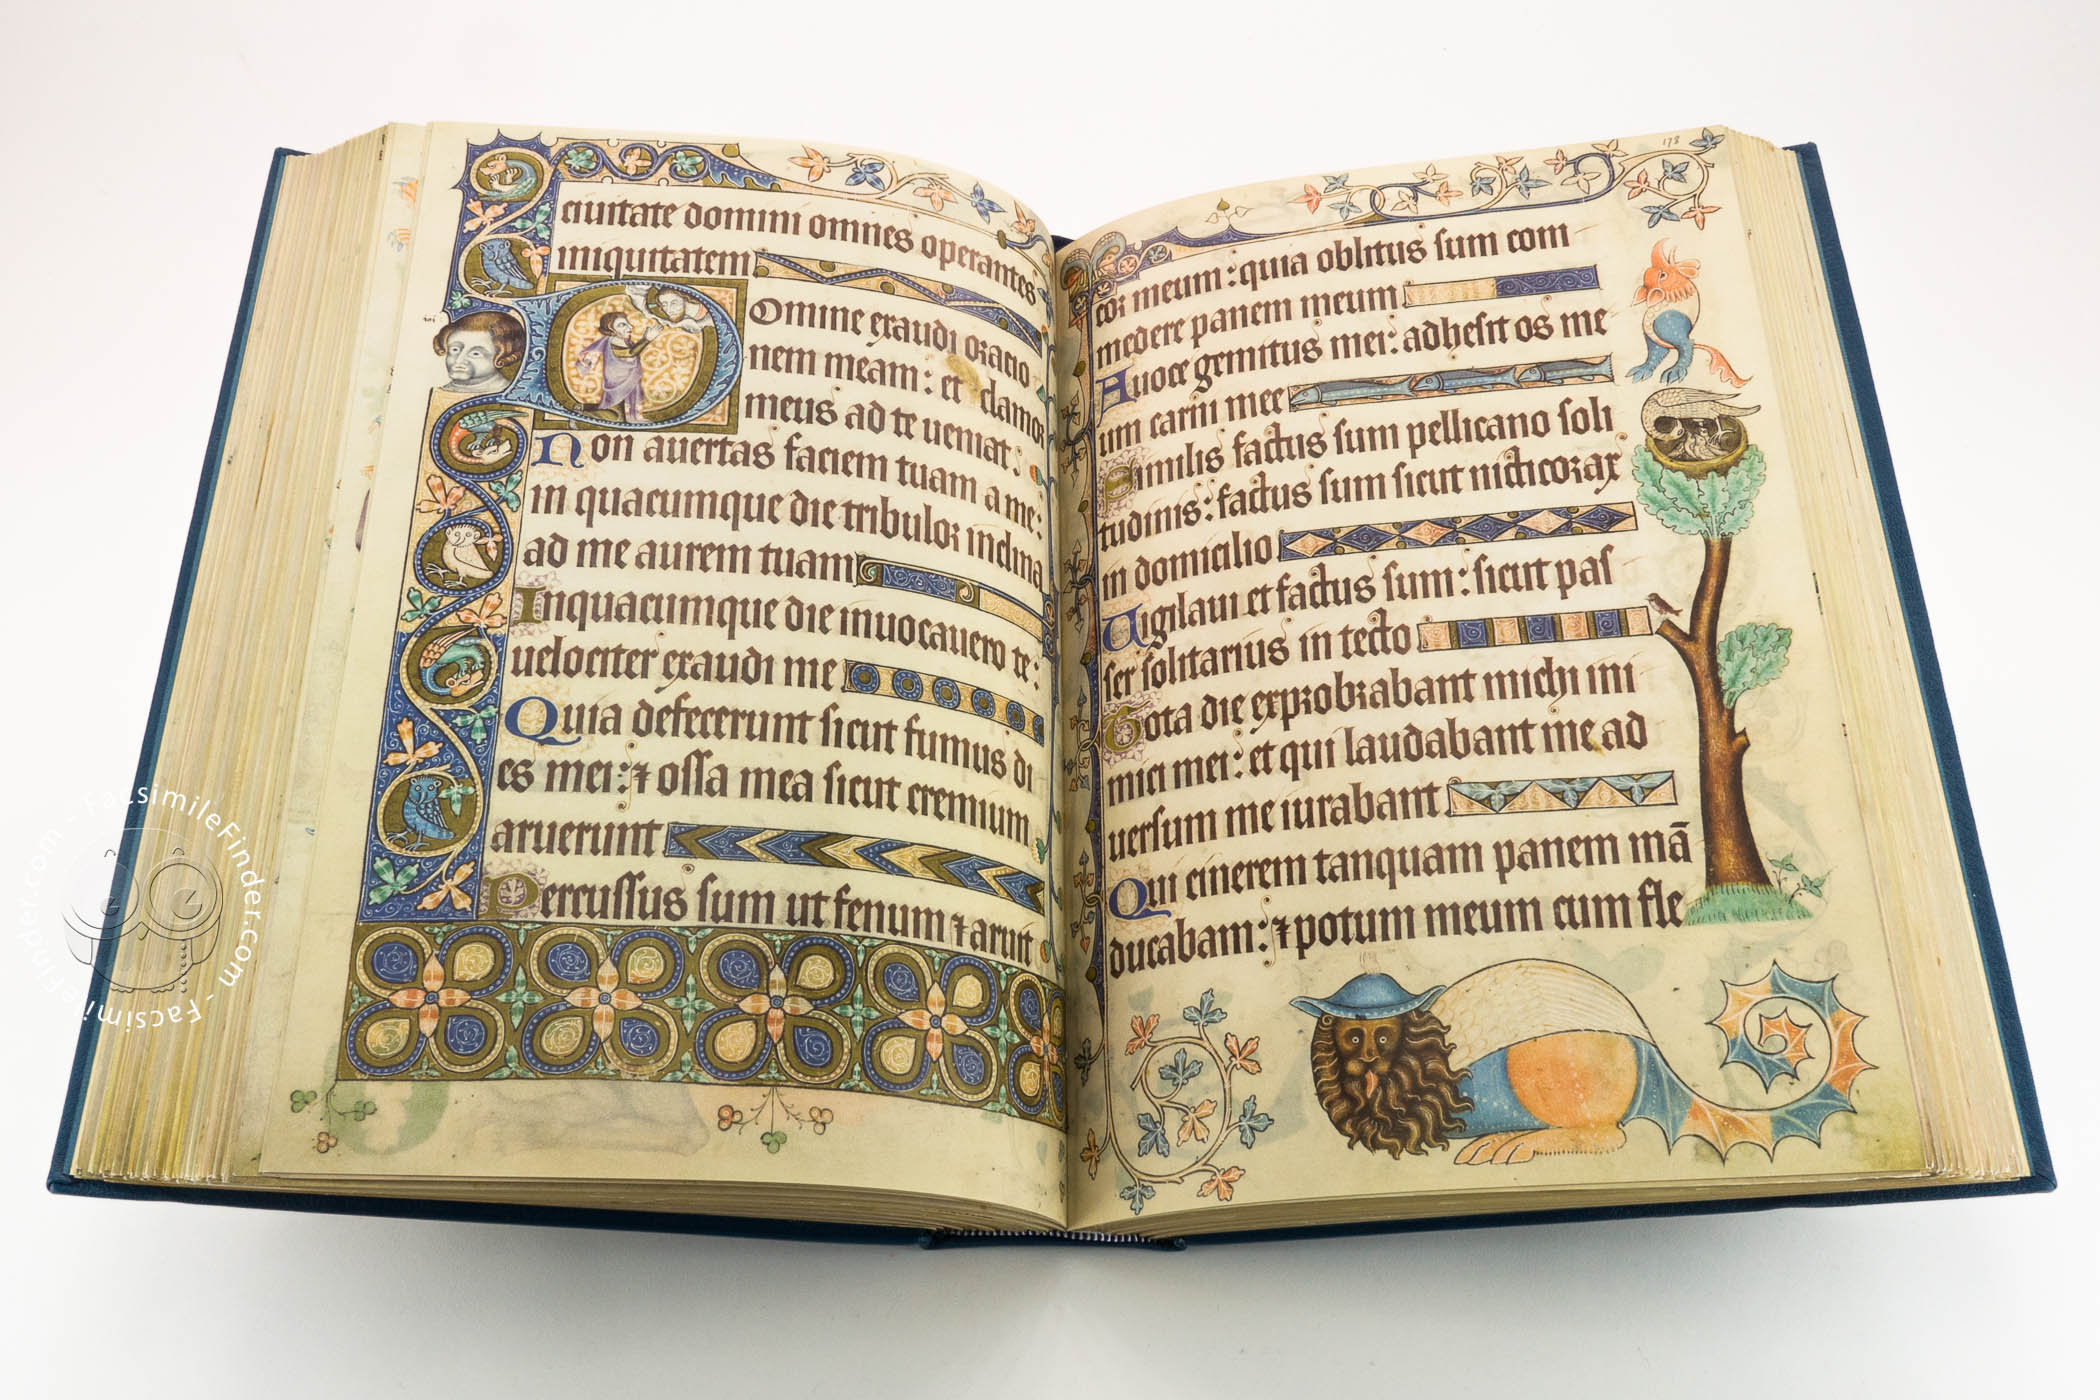 ciuitate domini omnes operantes
iniquitatem
Domine exaudi oracio
nem meam: et clamor
meus ad te ueniat:
Non auertas faciem tuam a me:
in quacumque die tribulor inclina
ad me aurem tuam
Inquacumque die inuocauero te:
uelociter exaudi me
Quia defecerunt sicut fumus di
es mei: ⁊ ossa mea sicut cremium
aruerunt
Percussus sum ut fenum ⁊ aruit
178
cor meum: quia oblitus sum com
medere panem meum
Auoce gemitus mei: adhesit os me
um carni mee
Similis factus sum pellicano soli
tudinis: factus sum sicut nicticorax
in domicilio
Uigilaui et factus sum: sicut pas
ser solitarius in tecto
Tota die exprobrabant michi ini
mici mei: et qui laudabant me ad
uersum me iurabant
Qui cinerem tanquam panem mā
ducabam: ⁊ potum meum cum fle
FacsimileFinder.com - FacsimileFinder.com -